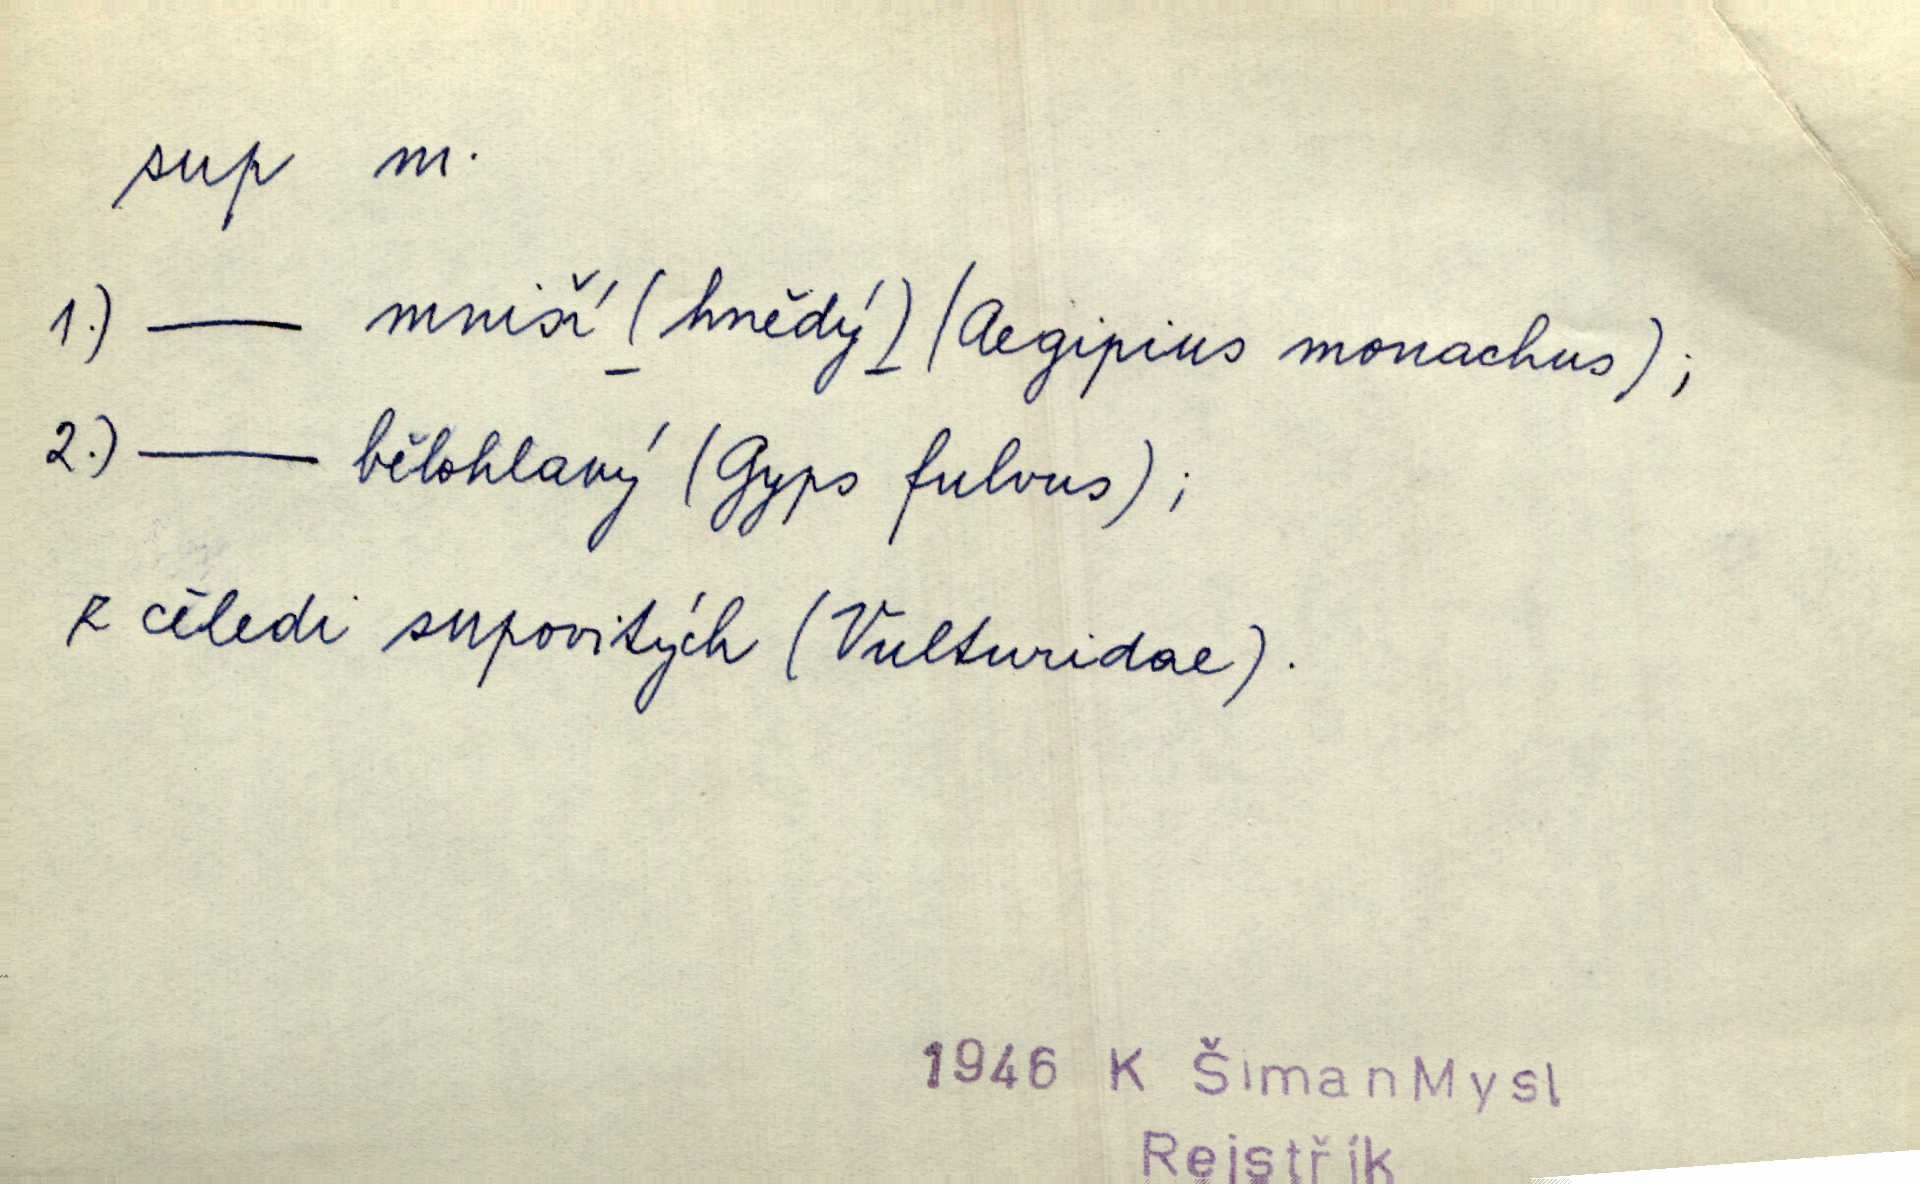 sup m.
1.) — mniší (hnědý) (Aegipius monachus);
2.) — bělohlavý (Gyps fulvus);
z čeledi supovitých (Vulturidae).
1946 K ŠimanMysl
Rejstřík